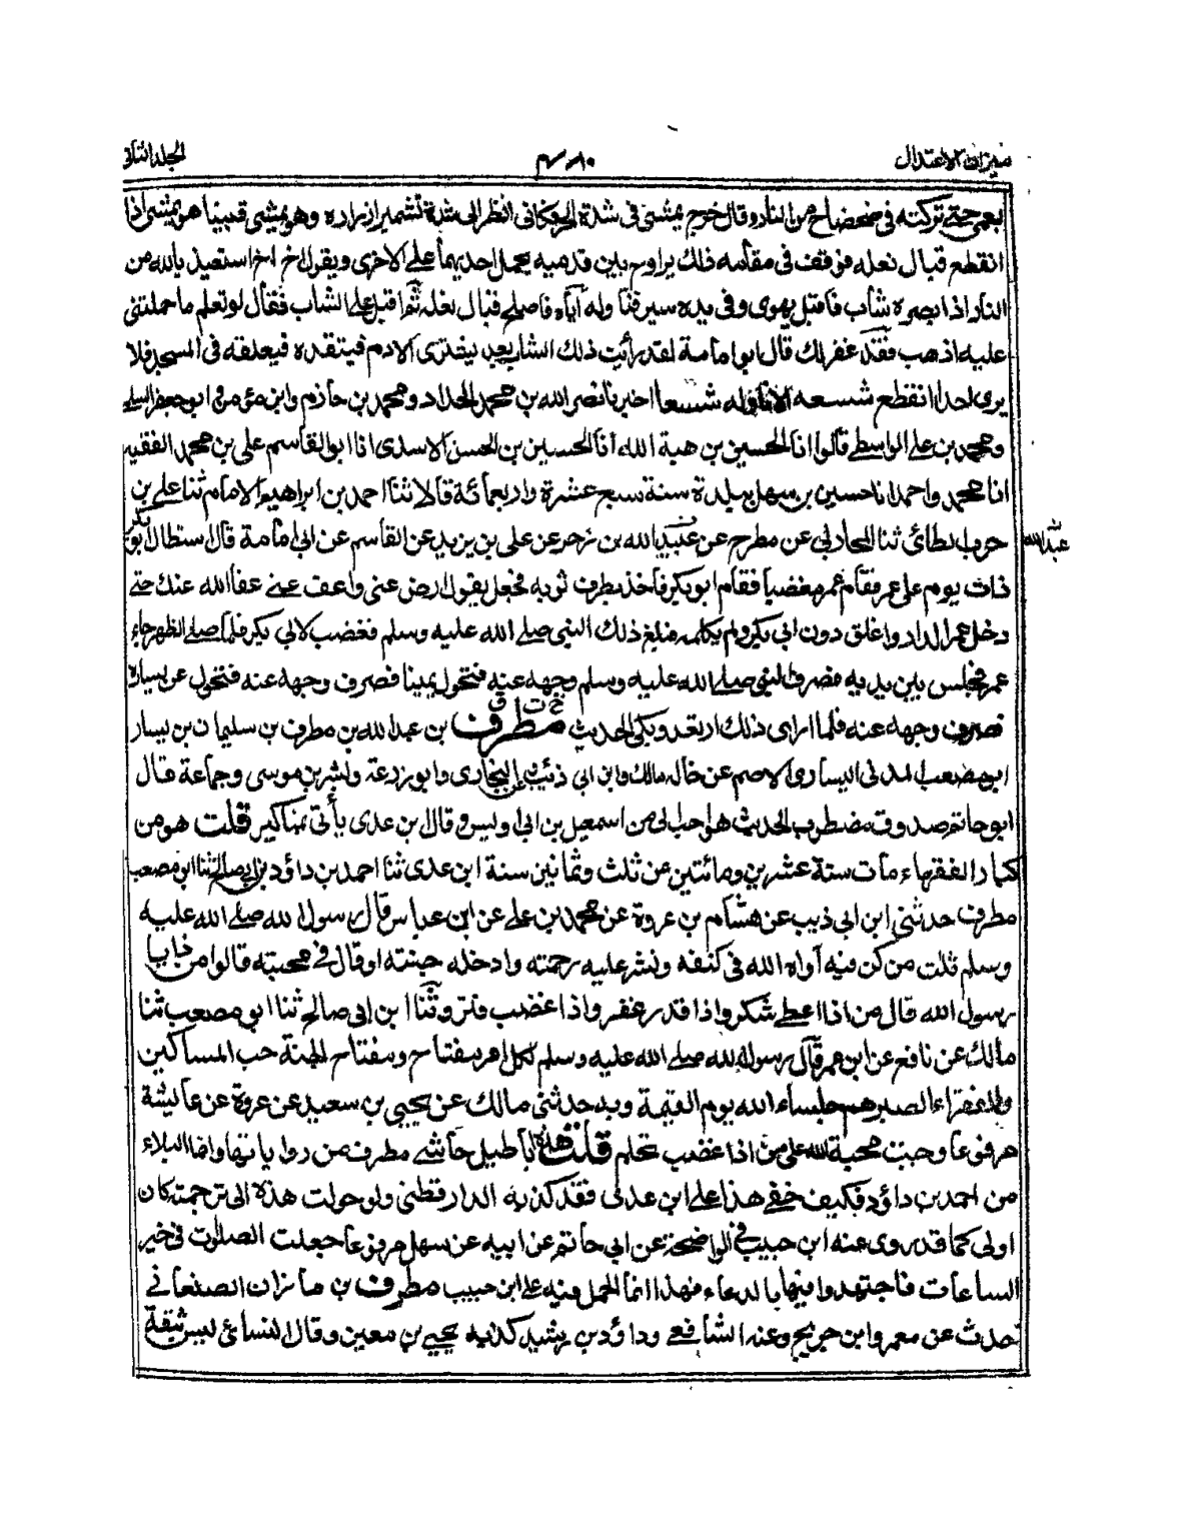 ميزان الاعتدال
الجلد الثانى
بعمى حتى تركته فى ضحضاح من النار وقال خرج يمشى فى شدة الحر كانى انظر الى شدة تشمير ازراره وهو يمشى فبينا هو يمشى اذا
انقطع قبال نعله فوقف فى مقامه ذلك يراوح بين قدميه يحمل احديهما على الاخرى ويقول اخ اخ استعيذ بالله من
النار اذا بصر به شاب فاقبل يهوى وفى يده سير فناوله اياه فاصلح قبال نعله ثم اقبل على الشاب فقال لو تعلم ما حملتنى
عليه اذهب فقد غفر لك قال ابو امامة لقد رأيت ذلك الشاب بعد يشترى الادم فيتقدده فيعلقه فى المسجد فلا
يرى احدا انقطع شسعه الا ناوله شسعا اخبرنا نصر الله بن محمد الحداد ومحمد بن حازم وابن مؤمن وابو جعفر السلمى
ومحمد بن على الواسطى قالوا انا الحسين بن هبة الله انا الحسين بن الحسن الاسدى انا ابو القاسم على بن محمد الفقيه
انا محمد واحمد انا حسين بن سهل ببلدة سنة سبع عشرة واربعمائة قالا ثنا احمد بن ابراهيم الامام ثنا على بن
حرب الطائى ثنا المحاربى عن مطرح عن عبيد الله بن زحر عن على بن يزيد عن القاسم عن ابى امامة قال استطال ابو بكر
عبد الله
ذات يوم على عمر فقام عمر مغضبا فقام ابو بكر فاخذ بطرف ثوبه فجعل يقول ارض عنى واعف عنى عفا الله عنك حتى
دخل عمر الدار واغلق دون ابى بكر ولم يكلمه فبلغ ذلك النبى صلى الله عليه وسلم فغضب لابى بكر فلما صلى الظهر جاء
عمر فجلس بين يديه فصرف النبى صلى الله عليه وسلم وجهه عنه فتحول يمينا فصرف وجهه عنه فتحول عن يساره
فصرف وجهه عنه فلما راى ذلك ارتعد وبكى الحديث مطرف بن عبد الله بن مطرف بن سليمان بن يسار
ابو مصعب المدنى اليسارى الاصم عن خاله مالك وابن ابى ذئب وعنه البخارى وابو زرعة وبشر بن موسى وجماعة قال
ابو حاتم صدوق مضطرب الحديث هو احب الى من اسمعيل بن ابى اويس وقال بن عدى يأتى بمناكير قلت هو من
كبار الفقهاء مات ستة عشرين ومائتين عن ثلث وثمانين سنة ابن عدى ثنا احمد بن داؤد بن ابى صالح ثنا ابو مصعب
مطرف حدثنى ابن ابى ذيب عن هشام بن عروة عن محمد بن على عن ابن عباس قال رسول الله صلى الله عليه
وسلم ثلث من كن فيه آواه الله فى كنفه ونشر عليه رحمته وادخله جنته او قال فى محبته قالوا من ذا يا
رسول الله قال من اذا اعطى شكر واذا قدر غفر واذا غضب فتر وثنا ابن ابى صالح ثنا ابو مصعب ثنا
مالك عن نافع عن ابن عمر قال رسول الله صلى الله عليه وسلم لكل امر مفتاح ومفتاح الجنة حب المساكين
والفقراء الصبر هم جلساء الله يوم القيمة وبه حدثنى مالك عن يحيى بن سعيد عن عروة عن عائشة
مرفوعا وجبت محبة الله على من اذا غضب تحلم قلت هذه اباطيل حاشى مطرف من رواياتها وانما البلاء
من احمد بن داؤد فكيف خفى هذا على ابن عدى فقد كذبه الدارقطنى ولو حولت هذه الى ترجمته كان
اولى كما قد روى عنه ابن حبيب فى الواضحة عن ابى حاتم عن ابيه عن سهل مرفوعا جعلت الصلوت فى خير
الساعات فاجتهدوا فيها بالدعاء فهذا انما الحمل فيه على ابن حبيب مطرف بن مازن الصنعانى
حدث عن معمر وابن جريج وعنه الشافعى وداؤد بن رشيد كذبه يحيى بن معين وقال النسائى ليس بثقة